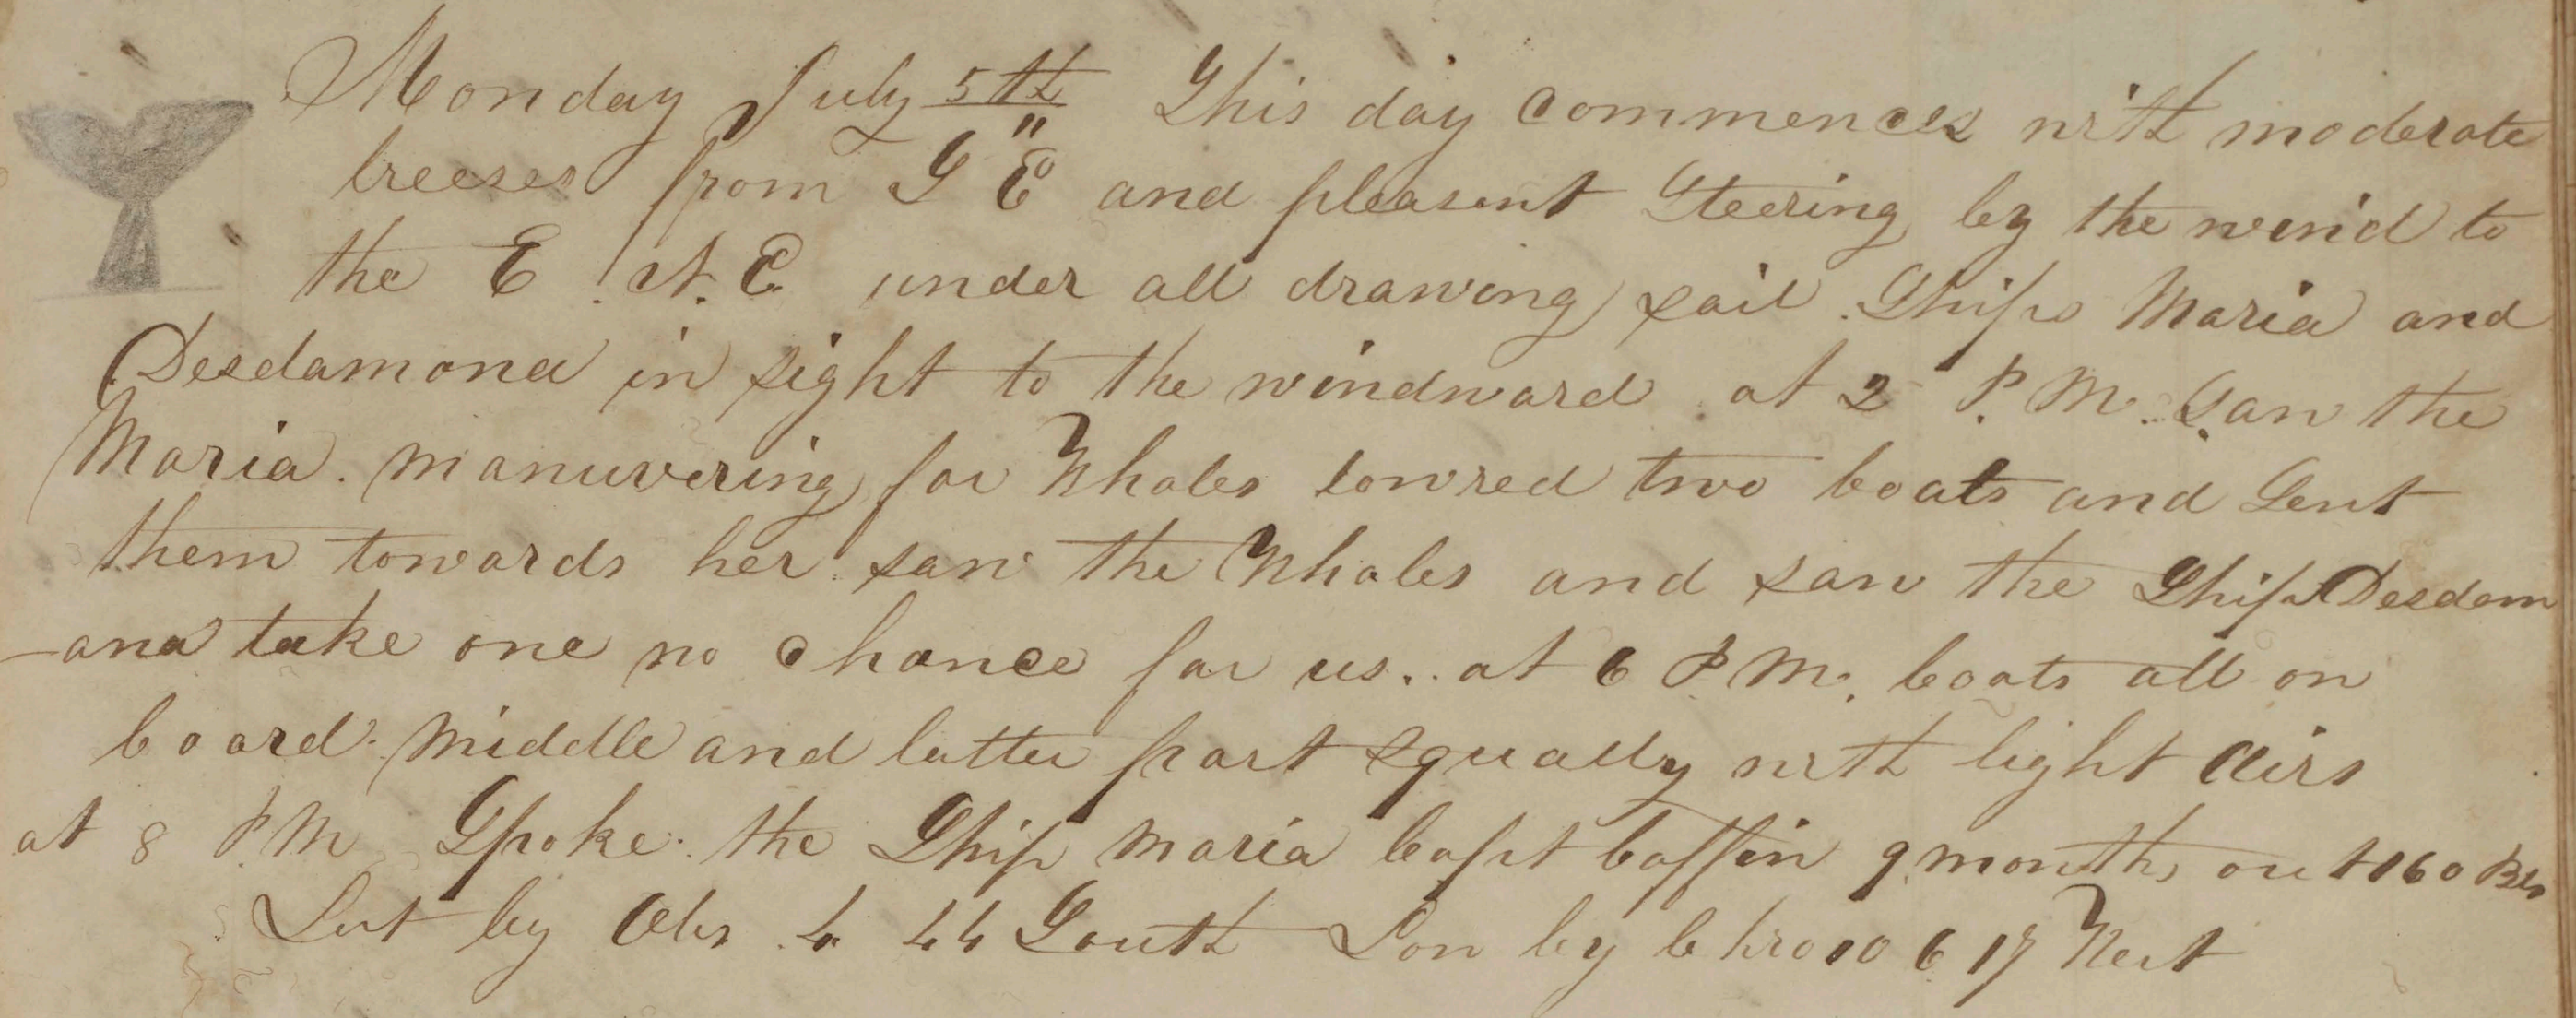 Monday July 5th This day commences with moderate
breeses from S E and pleasent Steering by the wind to
the E. N. E. under all drawing sail. Ships Maria and
Desdamona in sight to the windward. at 2 P. M. Saw the
Maria. manuvering for Whales lowred two boats and Sent
them towards her. saw the Whales and saw the Ship Desdem
-ona take one no chance for us.. at 6 P M. boats all on
board. Middle and latter part squally with light Airs
at 8 P. M Spoke. the Ship Maria Capt Coffin 9 months out 160 Bls
Lat by Obs 4 44 South Lon by Chro 106 17 West